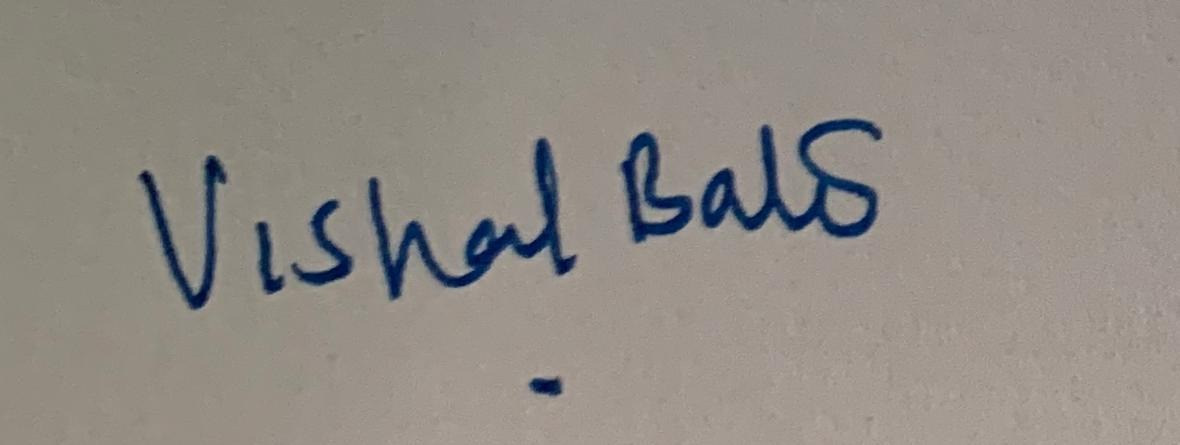 Vishal Bals